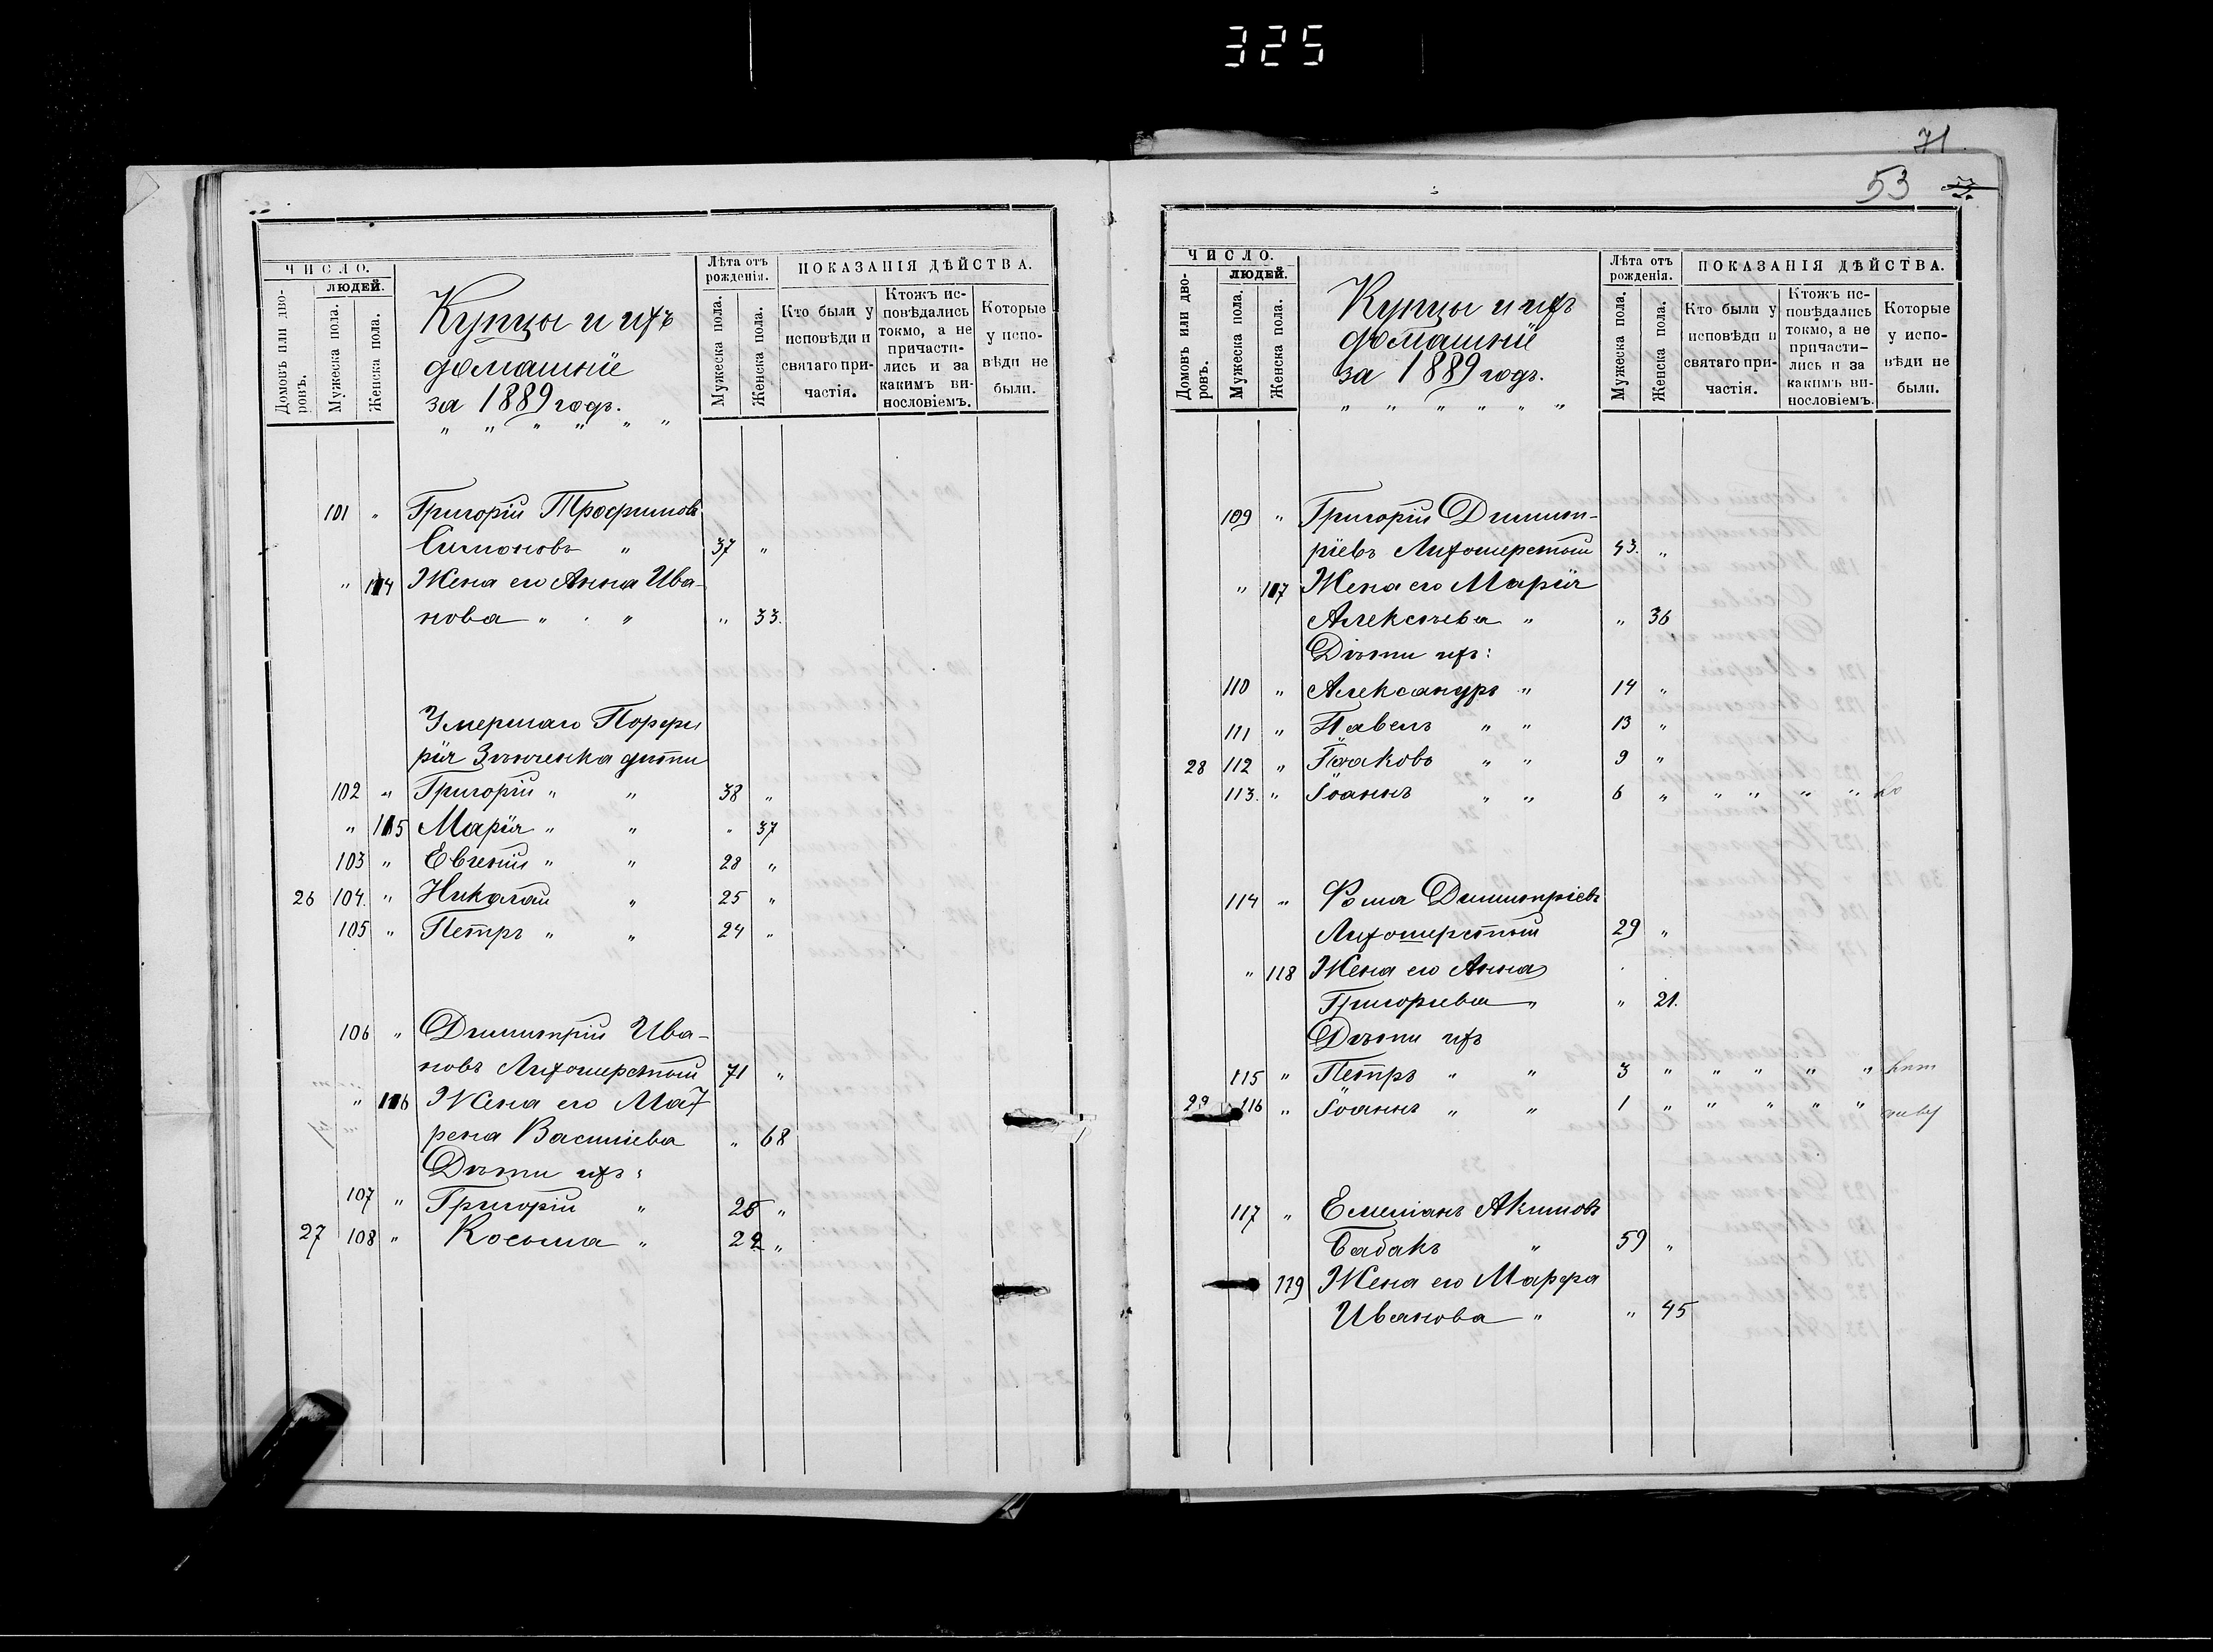 325
71
53
ЧИСЛО.
людей.
Домовъ или дворовъ.
Мужеска пола.
Женска пола.
Купцы и ихъ
домашніе
за 1889 годъ.
" " " " " "
Лѣта отъ рожденія.
Мужеска пола.
Женска пола.
ПОКАЗАНІЯ ДѢЙСТВА.
Кто были у исповѣди и святаго причастія.
Ктожъ исповѣдались токмо, а не причастились и за какимъ винословіемъ.
Которые у исповѣди не были.
101 " Григорій Трофимовъ
Симоновъ " 37 "
" 114 Жена его Анна Ива-
нова " " " 33.
Умершаго Порфи
рія Зѣнченка дѣти
102 " Григорій " " 38 "
" 115 Марія " " " 37
103 " Евгеній " " 28 "
26 104. " Николай " 25 "
105 " Петръ " " 24 "
106 " Димитрій Ива-
новъ Лихошерстый 71 "
" 116 Жена его Мат
рена Василіева " 68
Дѣти ихъ:
107 " Григорій " 26 "
27 108 " Косьма " 22 "
ЧИСЛО.
людей.
Домовъ или дворовъ.
Мужеска пола.
Женска пола.
Купцы и ихъ
домашніе
за 1889 годъ.
" " " " " "
Лѣта отъ рожденія.
Мужеска пола.
Женска пола.
ПОКАЗАНІЯ ДѢЙСТВА.
Кто были у исповѣди и святаго причастія.
Ктожъ исповѣдались токмо, а не причастились и за какимъ винословіемъ.
Которые у исповѣди не были.
109 " Григорій Димит-
ріевъ Лихошерстый 43. "
" 117 Жена его Марія
Алексѣева " " 36
Дѣти ихъ:
110 " Александръ " 14 "
111 " Павелъ " " 13 "
28 112 " Іаковъ " " 9 "
113. " Іоаннъ " " 6 " " " " "
114 " Фома Димитріевъ
Лихошерстый 29 "
" 118 Жена его Анна
Григорьева " " 21.
Дѣти ихъ
115 " Петръ " " 3 " " " " "
29 116 " Іоаннъ " " 1 " " " " "
117 " Емеліанъ Акимовъ
Бабакъ " 59 "
119 Жена его Марфа
Иванова " " 45